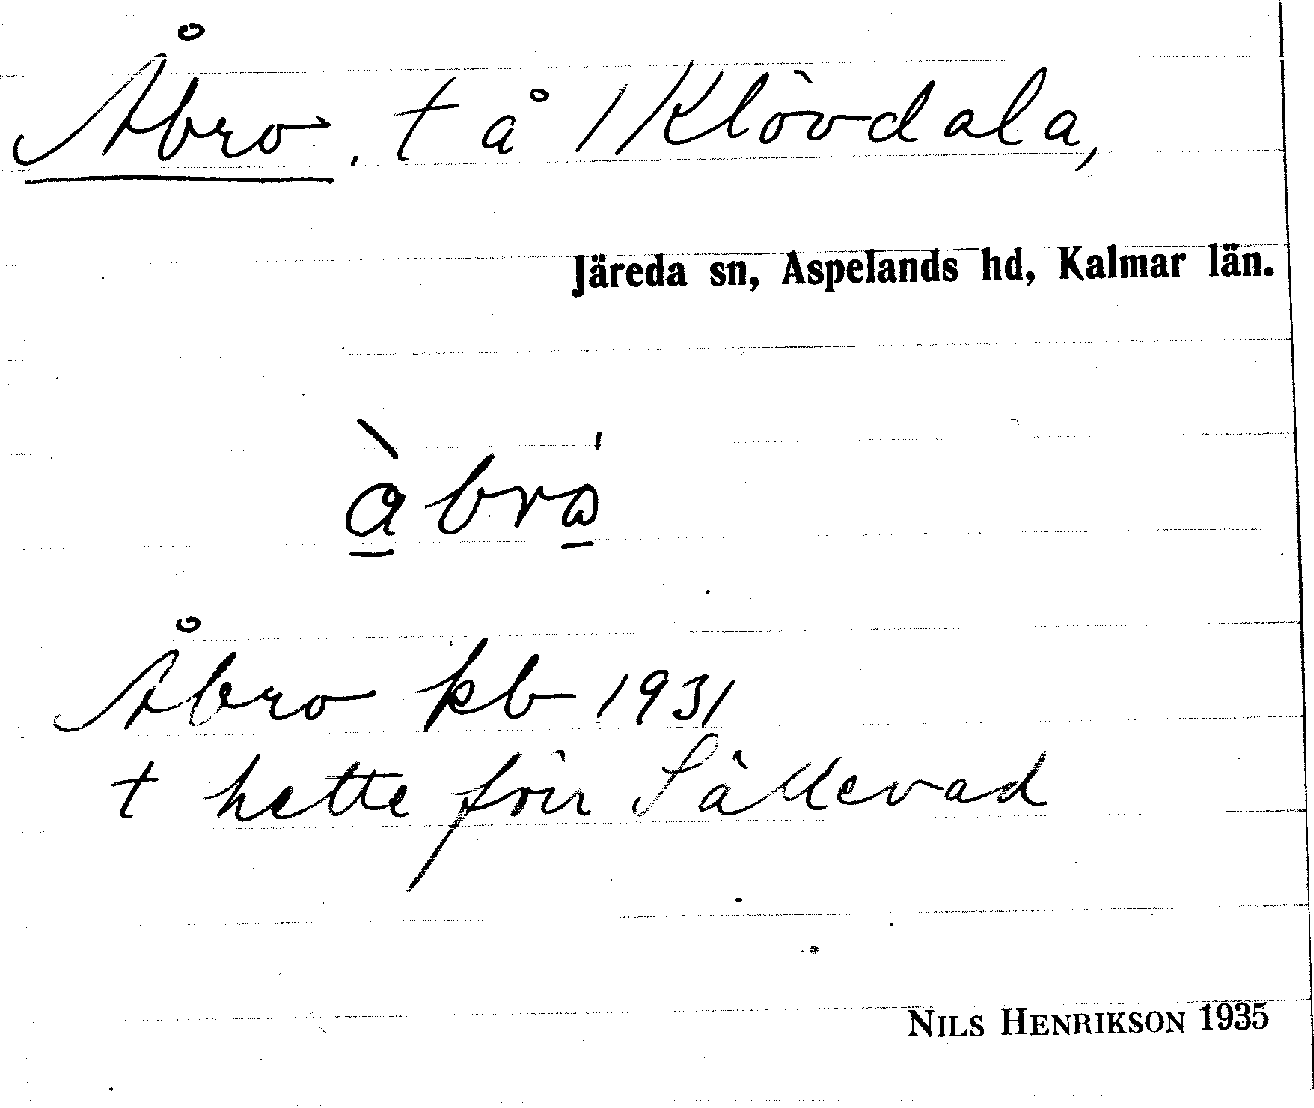 Åbro. t å 1 Klövdala,
Järeda sn, Aspelands hd, Kalmar län.
àbrå
Åbro kb 1931
t hette förr Sällevad
NILS HENRIKSON 1935